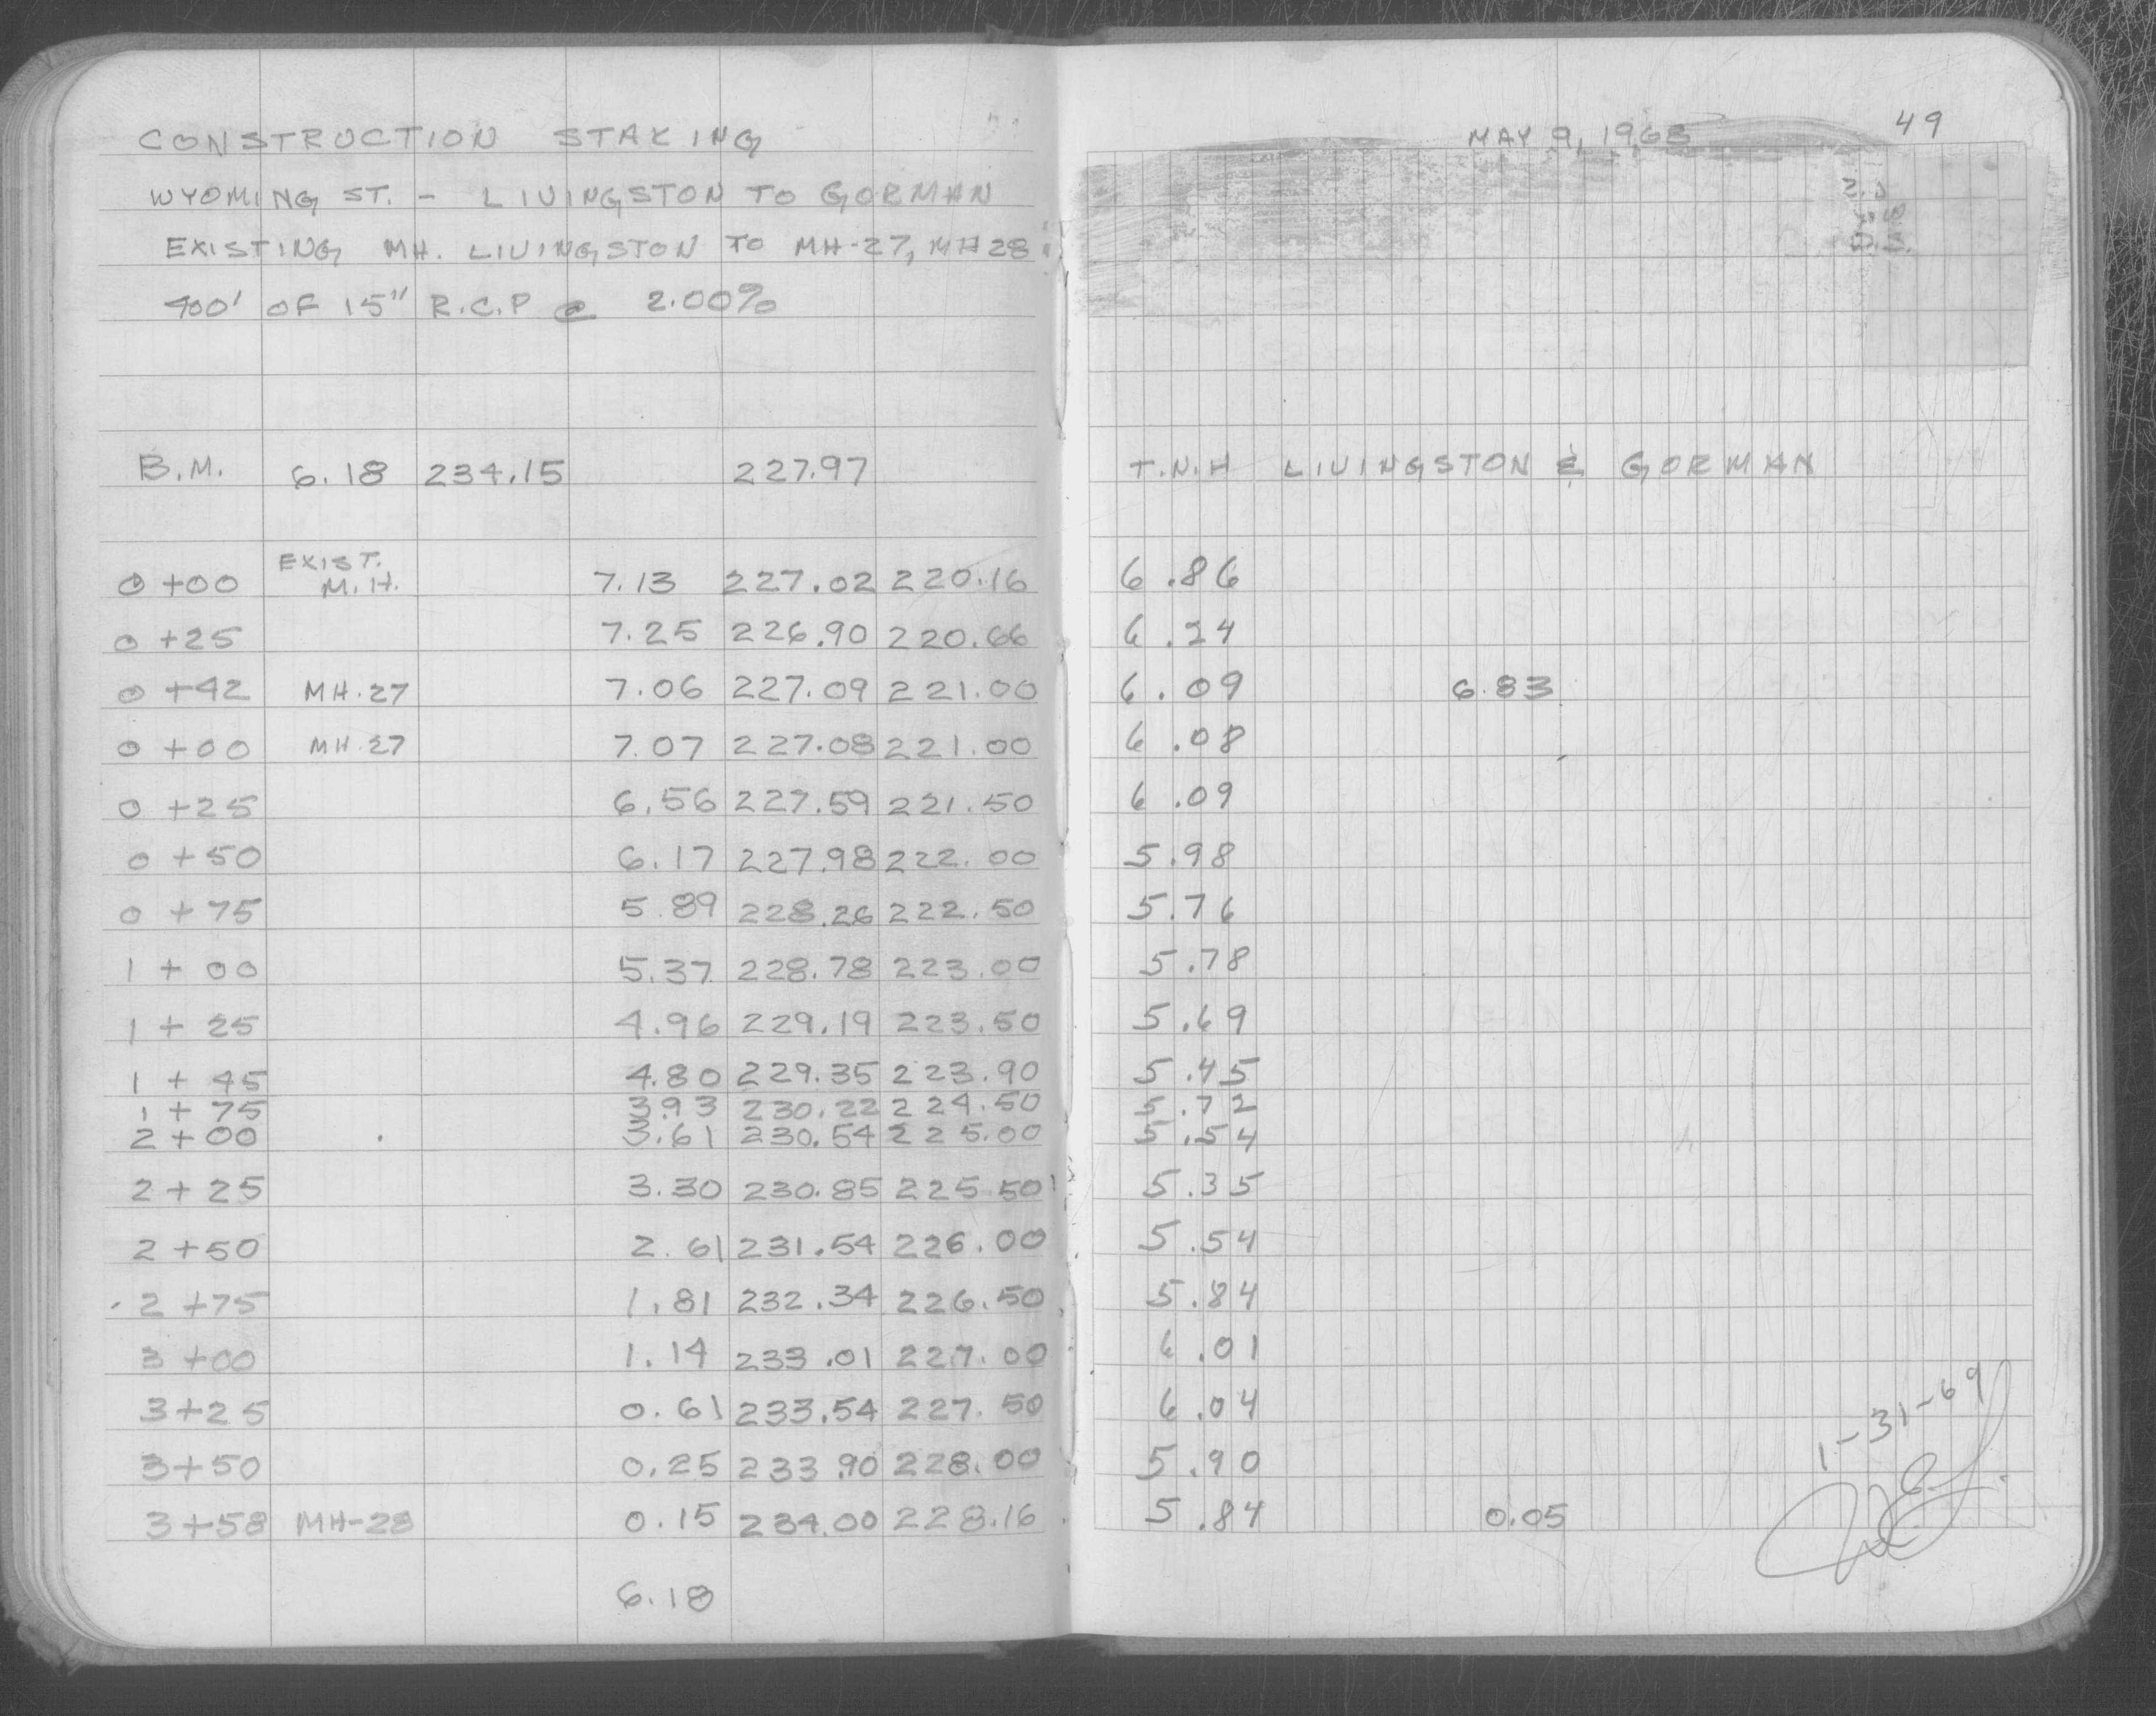 CONSTRUCTION STAKING
WYOMING ST. - LIVINGSTON TO GORMAN
EXISTING MH. LIVINGSTON TO MH-27, MH 28
400' OF 15" R.C.P @ 2.00%
B.M. 6.18 234.15 227.97
0+00 EXIST. M.H. 7.13 227.02 220.16
0+25 7.25 226.90 220.66
0+42 MH.27 7.06 227.09 221.00
0+00 MH.27 7.07 227.08 221.00
0+25 6.56 227.59 221.50
0+50 6.17 227.98 222.00
0+75 5.89 228.26 222.50
1+00 5.37 228.78 223.00
1+25 4.96 229.19 223.50
1+45 4.80 229.35 223.90
1+75 3.93 230.22 224.50
2+00 3.61 230.54 225.00
2+25 3.30 230.85 225.50
2+50 2.61 231.54 226.00
2+75 1.81 232.34 226.50
3+00 1.14 233.01 227.00
3+25 0.61 233.54 227.50
3+50 0.25 233.90 228.00
3+58 MH-28 0.15 234.00 228.16
6.18
MAY 9, 1968
49
T.N.H LIVINGSTON & GORMAN
6.86
6.24
6.09 6.83
6.08
6.09
5.98
5.76
5.78
5.69
5.45
5.72
5.54
5.35
5.54
5.84
6.01
6.04
5.90
5.84 0.05
1-31-69